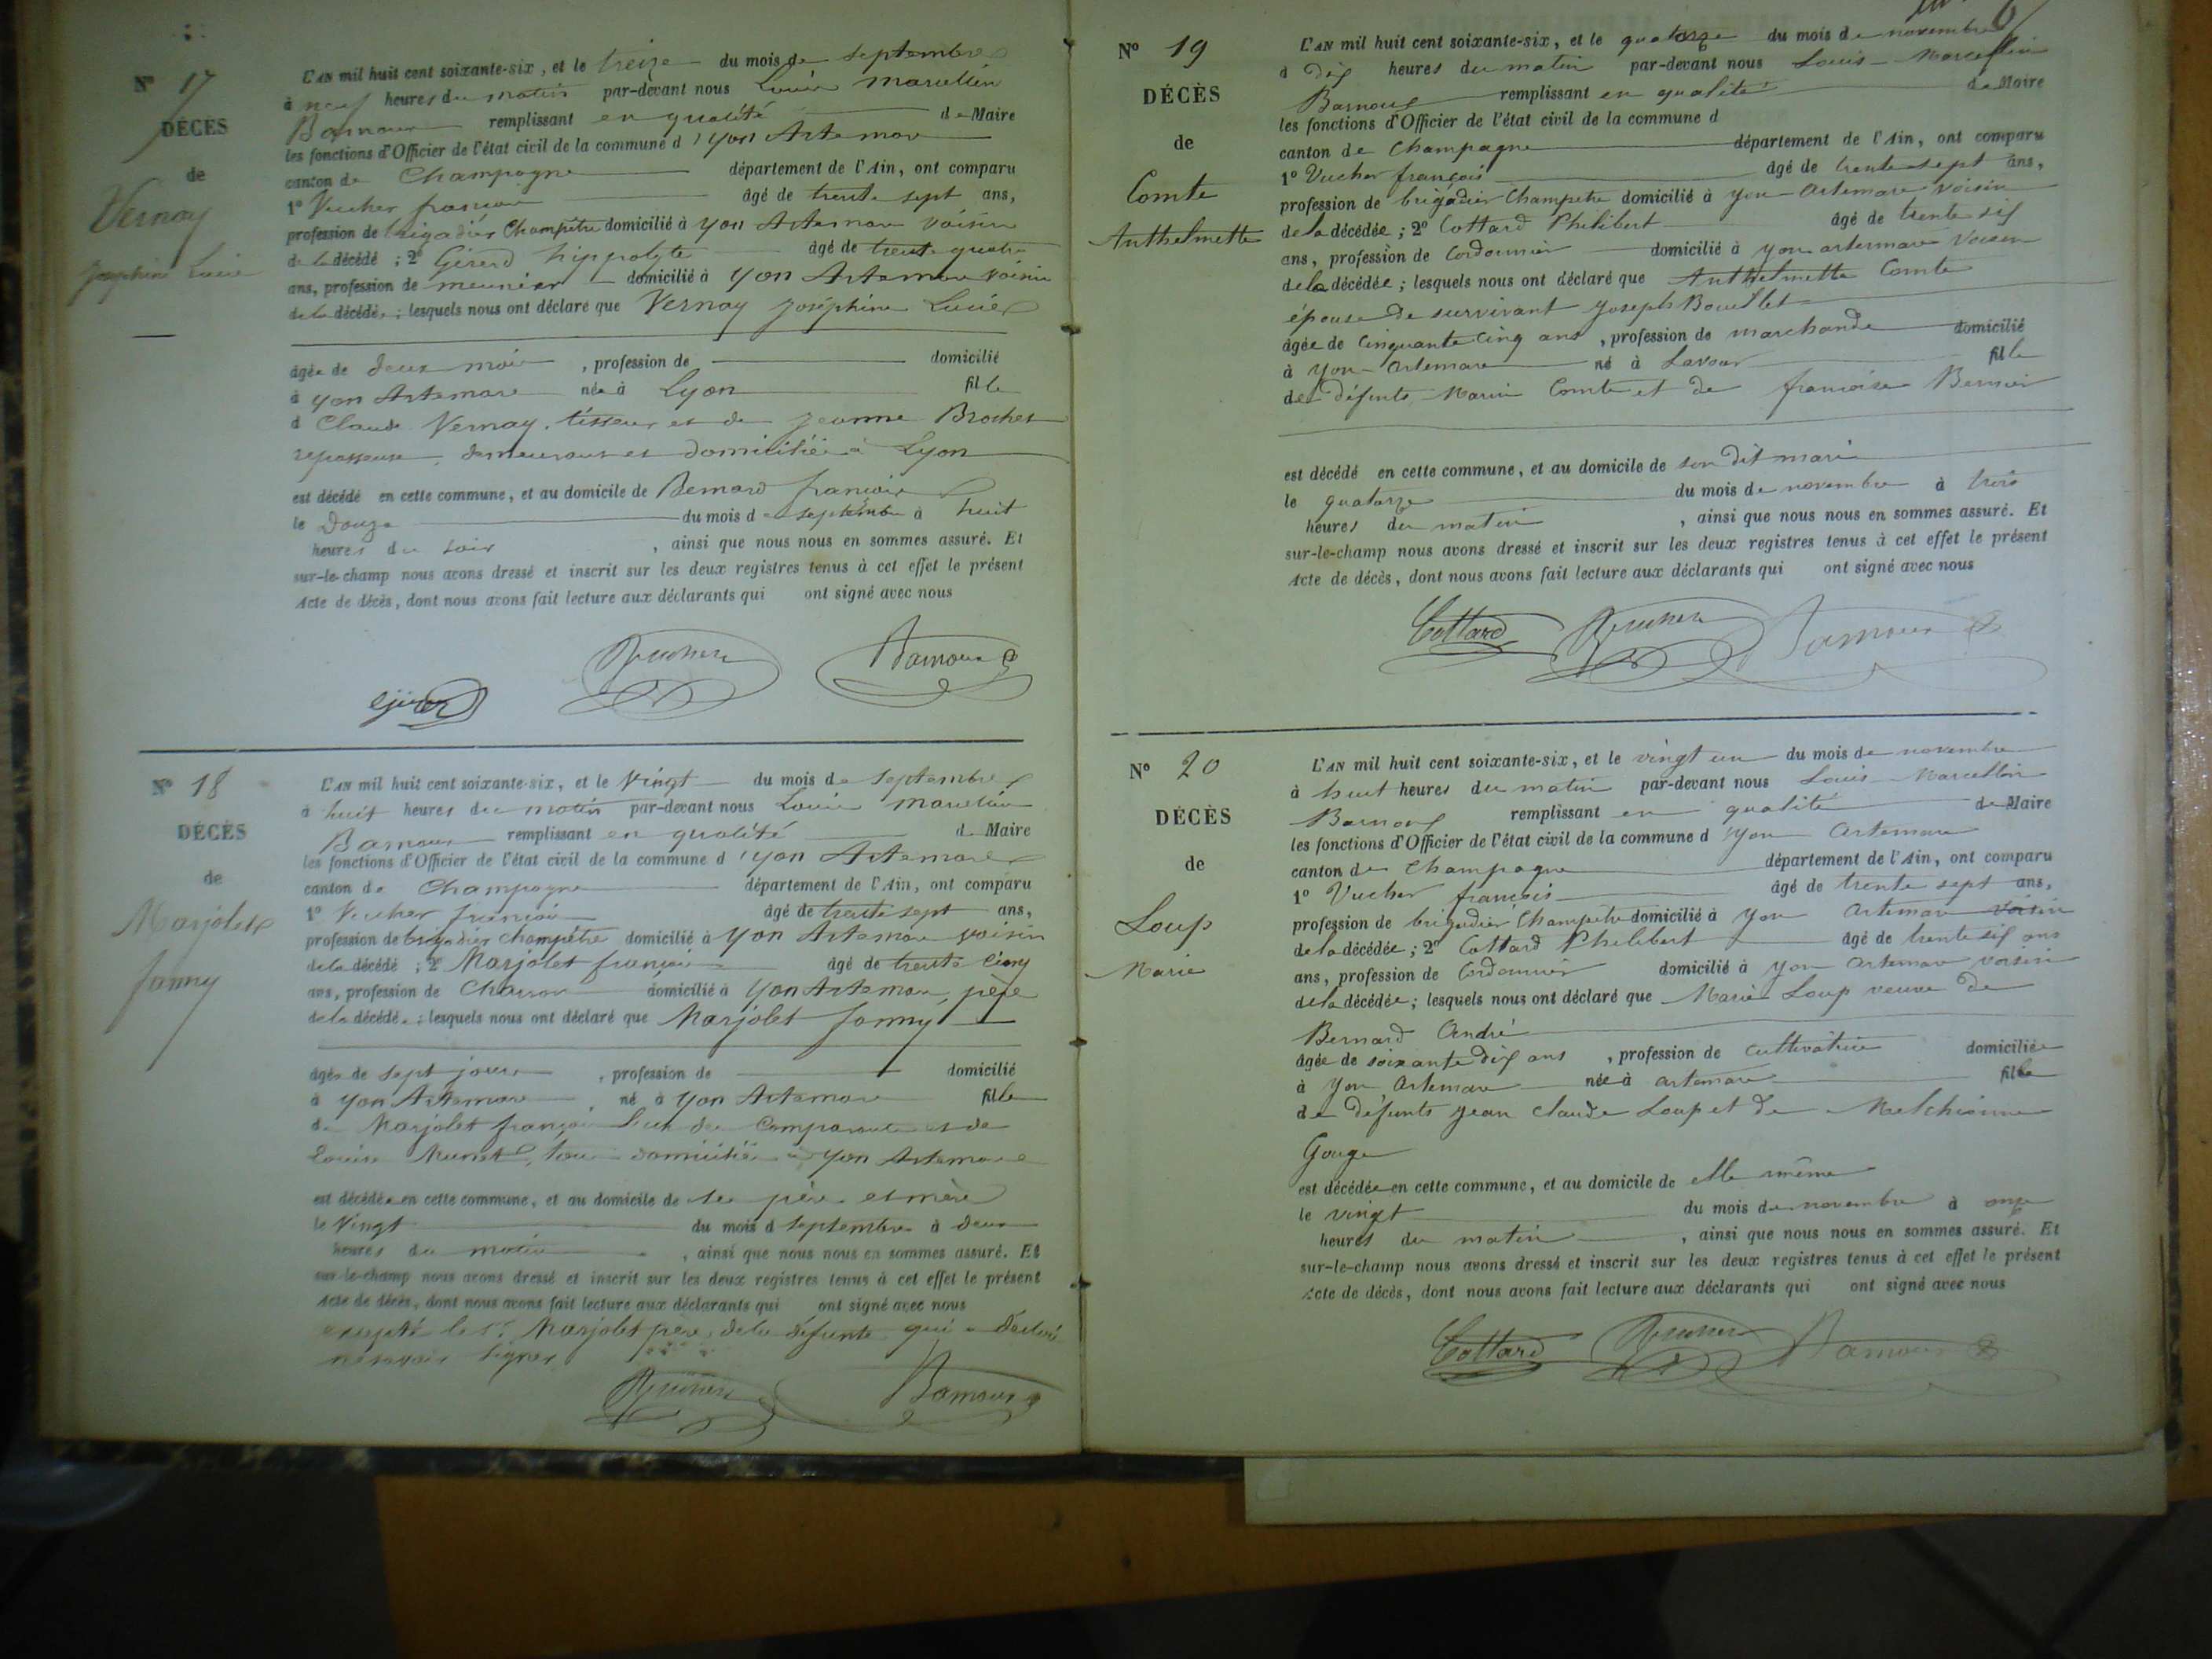 N° 17
DÉCÈS
de
Vernay
Joséphine Lucie
L'AN mil huit cent soixante-six, et le treize du mois de septembre
à neuf heures du matin par-devant nous Louis Marcellin
Barnoux remplissant en qualité de Maire
les fonctions d'Officier de l'état civil de la commune d'yon Artemare
canton de Champagne département de l'Ain, ont comparu
1° Vucher françois âgé de trente sept ans,
profession de brigadier Champêtre domicilié à yon Artemare voisin
de la décédé ; 2° Gérerd hippolyte âgé de trente quatre
ans, profession de meunier domicilié à yon Artemare voisin
de la décédée ; lesquels nous ont déclaré que Vernay Joséphine Lucie
âgée de deux mois , profession de domicilié
à yon Artemare née à Lyon fille
d Claude Vernay, tisseur et de Jeanne Brochet
repasseuse, demeurant et domiciliés à Lyon
est décédé en cette commune, et au domicile de Bernard françois
le Douze du mois de septembre à huit
heures du soir , ainsi que nous nous en sommes assuré. Et
sur-le-champ nous avons dressé et inscrit sur les deux registres tenus à cet effet le présent
Acte de décès, dont nous avons fait lecture aux déclarants qui ont signé avec nous
Barnoux
N° 18
DÉCÈS
de
Marjolet
fanny
L'AN mil huit cent soixante-six, et le Vingt du mois de septembre
à huit heures du matin par-devant nous Louis Marcellin
Barnoux remplissant en qualité de Maire
les fonctions d'Officier de l'état civil de la commune d'yon Artemare
canton de Champagne département de l'Ain, ont comparu
1° Vucher françois âgé de trente sept ans,
profession de brigadier champêtre domicilié à yon Artemare voisin
de la décédé ; 2° Marjolet françois âgé de trente cinq
ans, profession de Charron domicilié à yon Artemare, père
de la décédée ; lesquels nous ont déclaré que Marjolet fanny
âgée de sept jours , profession de domicilié
à yon Artemare , né à yon Artemare fille
de Marjolet françois l'un des comparants et de
Louise , tous domiciliés à yon Artemare
est décédée en cette commune, et au domicile de ses père et mère
le Vingt du mois d septembre à deux
heures du matin , ainsi que nous nous en sommes assuré. Et
sur-le-champ nous avons dressé et inscrit sur les deux registres tenus à cet effet le présent
Acte de décès, dont nous avons fait lecture aux déclarants qui ont signé avec nous
excepté le sr Marjolet père de la défunte qui a déclaré
ne savoir signer
Barnoux
N° 19
DÉCÈS
de
Comte
Anthelmette
L'AN mil huit cent soixante-six, et le quatorze du mois de novembre
à dix heures du matin par-devant nous Louis Marcellin
Barnoux remplissant en qualité de Maire
les fonctions d'Officier de l'état civil de la commune d
canton de Champagne département de l'Ain, ont comparu
1° Vucher françois âgé de trente sept ans,
profession de brigadier Champetre domicilié à yon Artemare voisin
de la décédée ; 2° Cottard Philibert âgé de trente six
ans, profession de Cordonnier domicilié à yon artemare voisin
de la décédée ; lesquels nous ont déclaré que Anthelmette Comte
épouse de survivant Joseph Bouillet
âgée de Cinquante Cinq ans , profession de marchande domicilié
à yon Artemare né à Lavour fille
des défunts Marin Comte et de françoise Bernier
est décédé en cette commune, et au domicile de son dit mari
le quatorze du mois de novembre à trois
heures du matin , ainsi que nous nous en sommes assuré. Et
sur-le-champ nous avons dressé et inscrit sur les deux registres tenus à cet effet le présent
Acte de décès, dont nous avons fait lecture aux déclarants qui ont signé avec nous
Cottard Barnoux
N° 20
DÉCÈS
de
Loup
Marie
L'AN mil huit cent soixante-six, et le vingt un du mois de novembre
à huit heures du matin par-devant nous Louis Marcellin
Barnoux remplissant en qualité de Maire
les fonctions d'Officier de l'état civil de la commune d'yon Artemare
canton de Champagne département de l'Ain, ont comparu
1° Vucher françois âgé de trente sept ans,
profession de brigadier Champetre domicilié à yon Artemare voisin
de la décédée ; 2° Cottard Philibert âgé de trente six ans
ans, profession de Cordonnier domicilié à yon Artemare voisin
de la décédée ; lesquels nous ont déclaré que Marie Loup veuve de
Bernard André
âgée de soixante dix ans , profession de cultivatrice domiciliée
à yon Artemare née à artemare fille
de défunts jean claude Loup et de Melchionne
Gouge
est décédée en cette commune, et au domicile de elle même
le vingt du mois de novembre à onze
heures du matin , ainsi que nous nous en sommes assuré. Et
sur-le-champ nous avons dressé et inscrit sur les deux registres tenus à cet effet le présent
Acte de décès, dont nous avons fait lecture aux déclarants qui ont signé avec nous
Cottard Barnoux